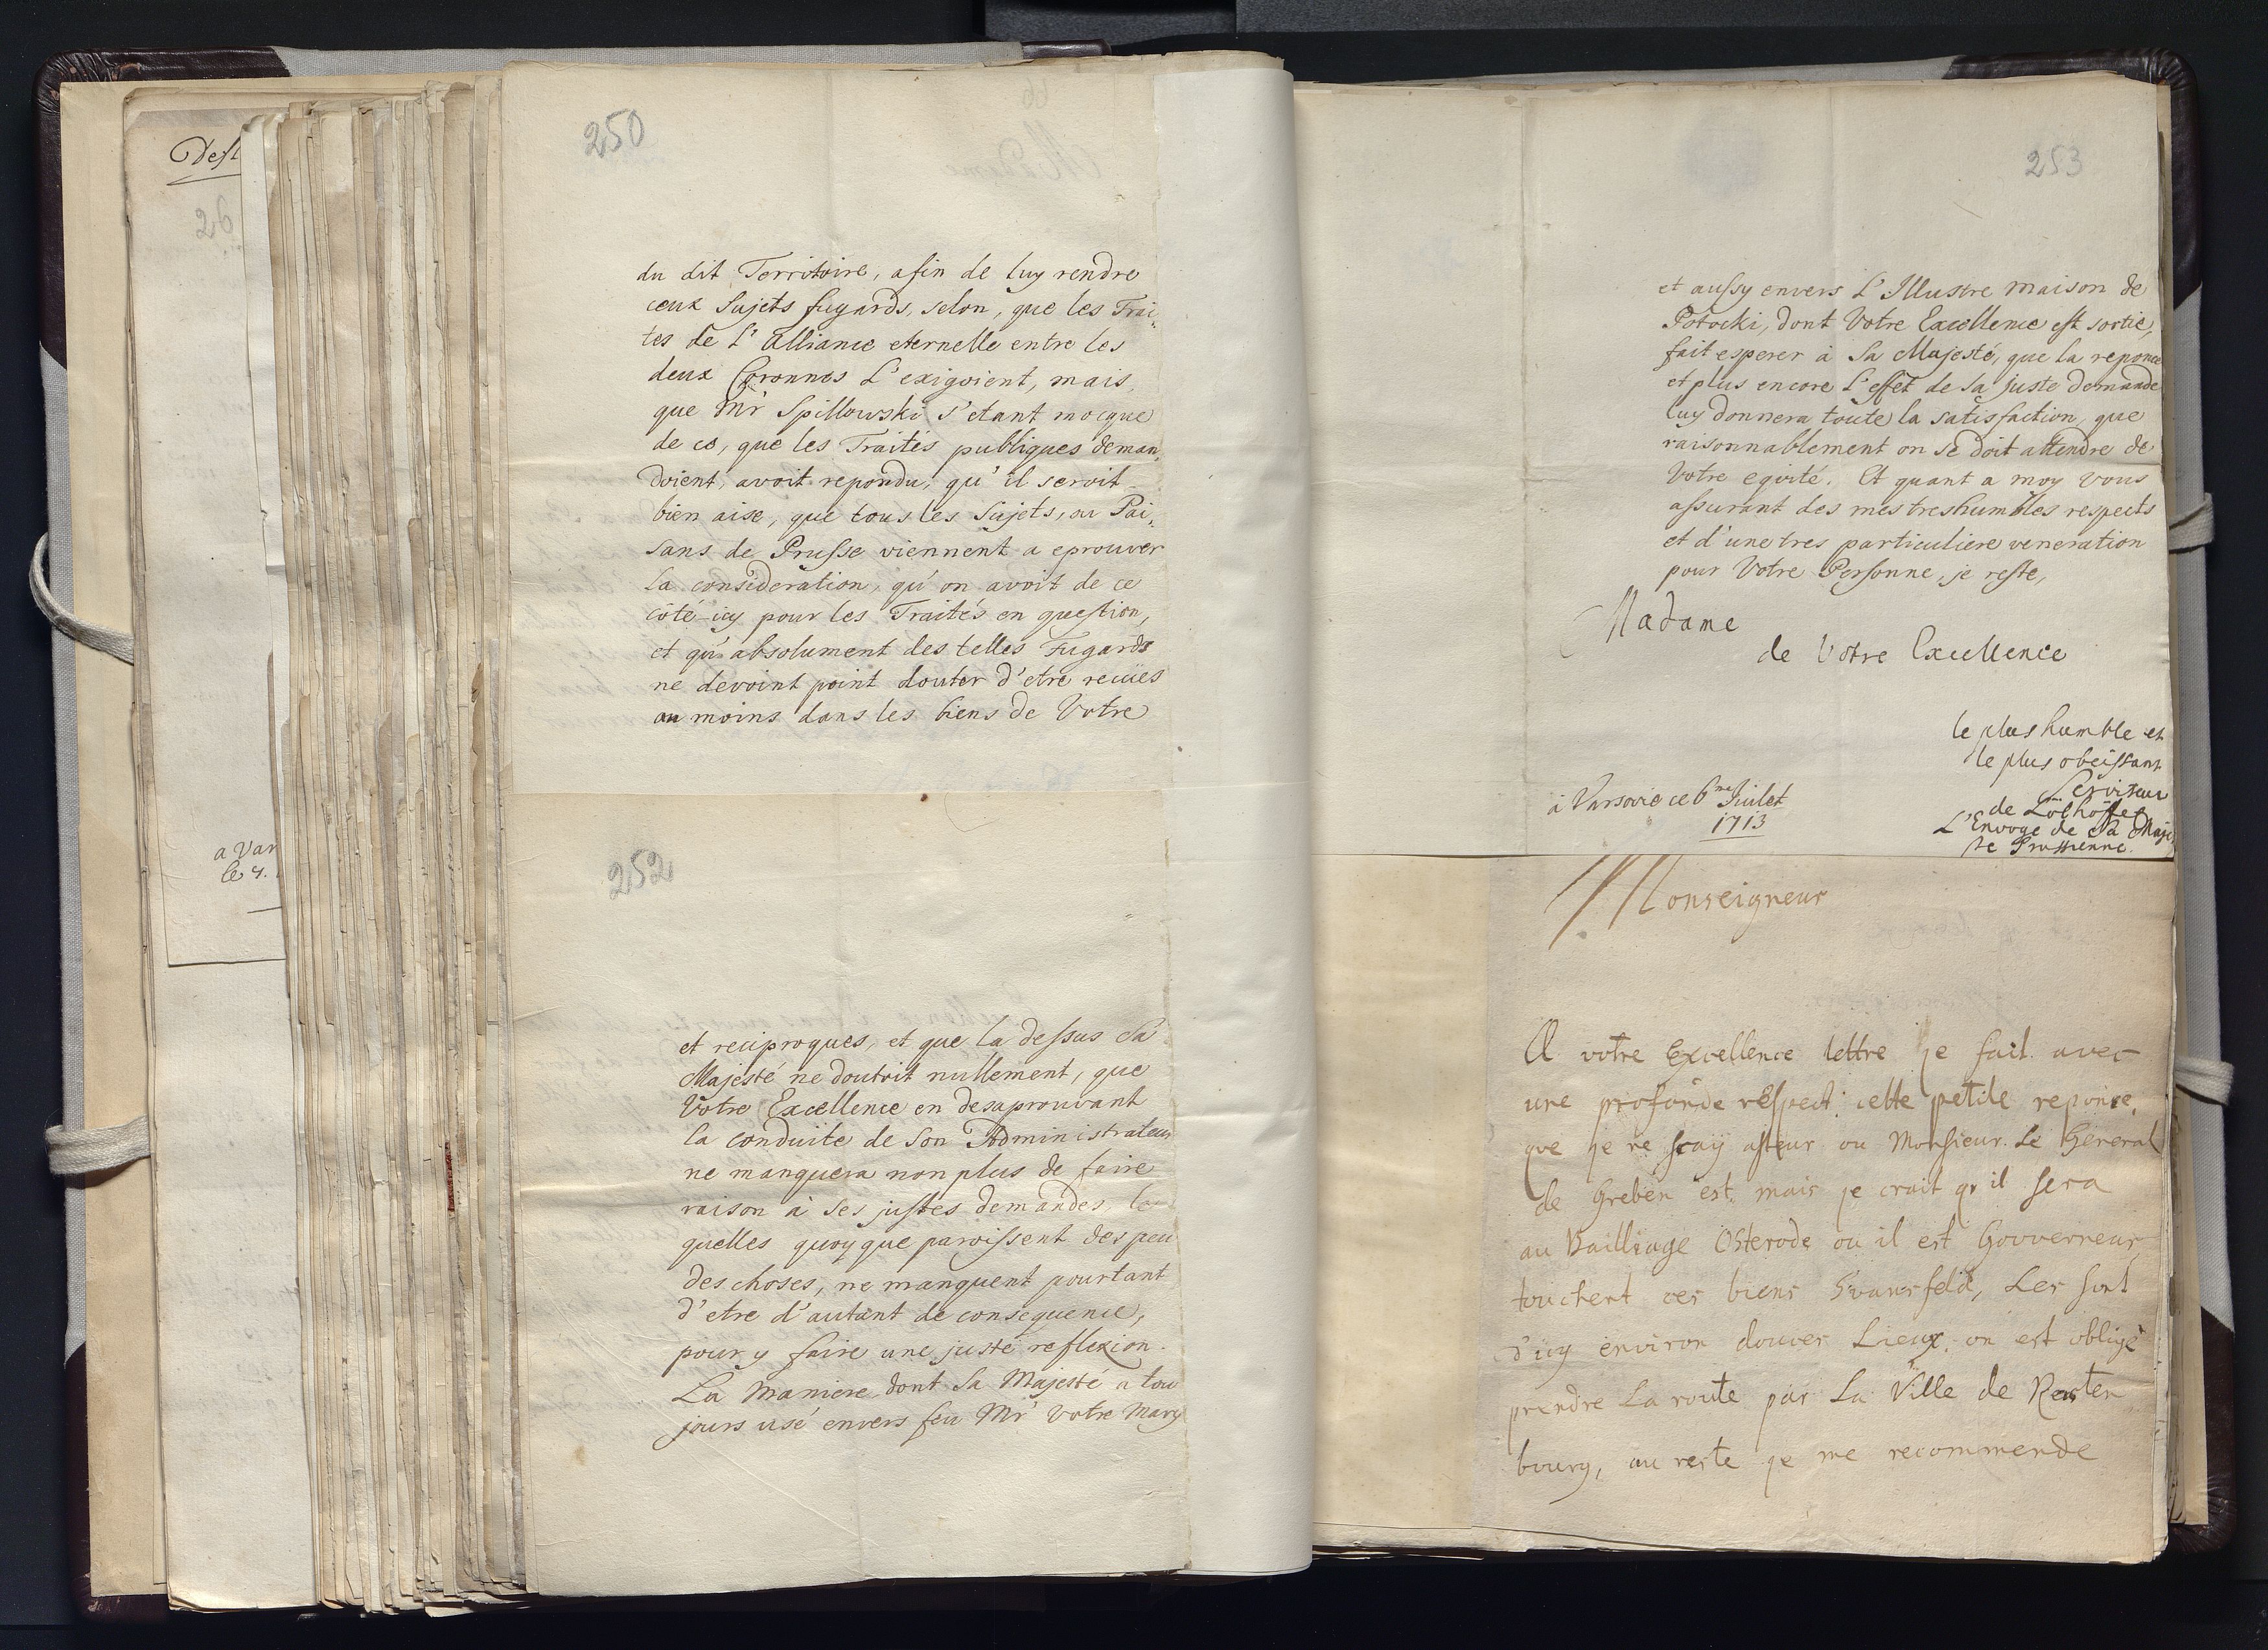 Dest
26
a Var
le 4.
250
du dit Territoire, afin de luy rendre
ceux Sujets fugards, selon, que les Trai,
tes de L'Alliance eternelle entre les
deux Coronnes L'exigoient, mais,
que Mr Spillowski s'etant mocque
de ce, que les Traités publiques deman,
doient, avoit repondu, qu'il seroit
bien aise, que tous les Sujets, ou Pai,
sans de Prusse viennent a eprouver
la consideration, qu'on avoit de ce
coté-icy pour les Traités en question,
et qu'absolument des telles Fugards
ne devoint point douter d'etre recües
au moins dans les biens de Votre
252
et reciproques, et que la dessus Sa
Majesté ne doutoit nullement, que
Votre Excellence en desaprouvant
la conduite de Son Administrateur
ne manquera non plus de faire
raison à ses justes demandes,
quelles quoyque paroissent des peu
des choses, ne manquent pourtant
d'etre d'autant de consequence,
pour y faire une juste reflexion.
La Maniere dont Sa Majesté a tou
jours usé envers feu Mr Votre Mary
253
et aussy envers L'Illustre Maison de
Potocki, dont Votre Excellence est sortie,
fait esperer à Sa Majesté, que la reponce
et plus encore L'effet de sa juste demande
luy donnera toute la satisfaction, que
raisonnablement on se doit attendre de
Votre eqvité. Et quant a moy vous
assurant des mes treshumbles respects
et d'une tres particuliere veneration
pour Votre Personne, je reste,
Madame
de Votre Excellence
le plus humble et
le plus obeissant
Serviteur
de Lölhöffel
L'Envoye de Sa Maje,
ste Prussienne.
à Varsovie ce 6me Juilet
1713
Monseigneur
A votre Excellence lettre je fait avec
une profonde respect cette petite reponce,
que je ne scay asteur ou Monsieur Le General
de Greben est, mais je crait qv'il sera
au Bailliage Osterode ou il est Gouverneur,
touchent ces biens Svansfeld, Les sont
d'icy environ douces Lieux, on est obligé
prendre La route par La Ville de Rasten
bourg, au reste je me recommende